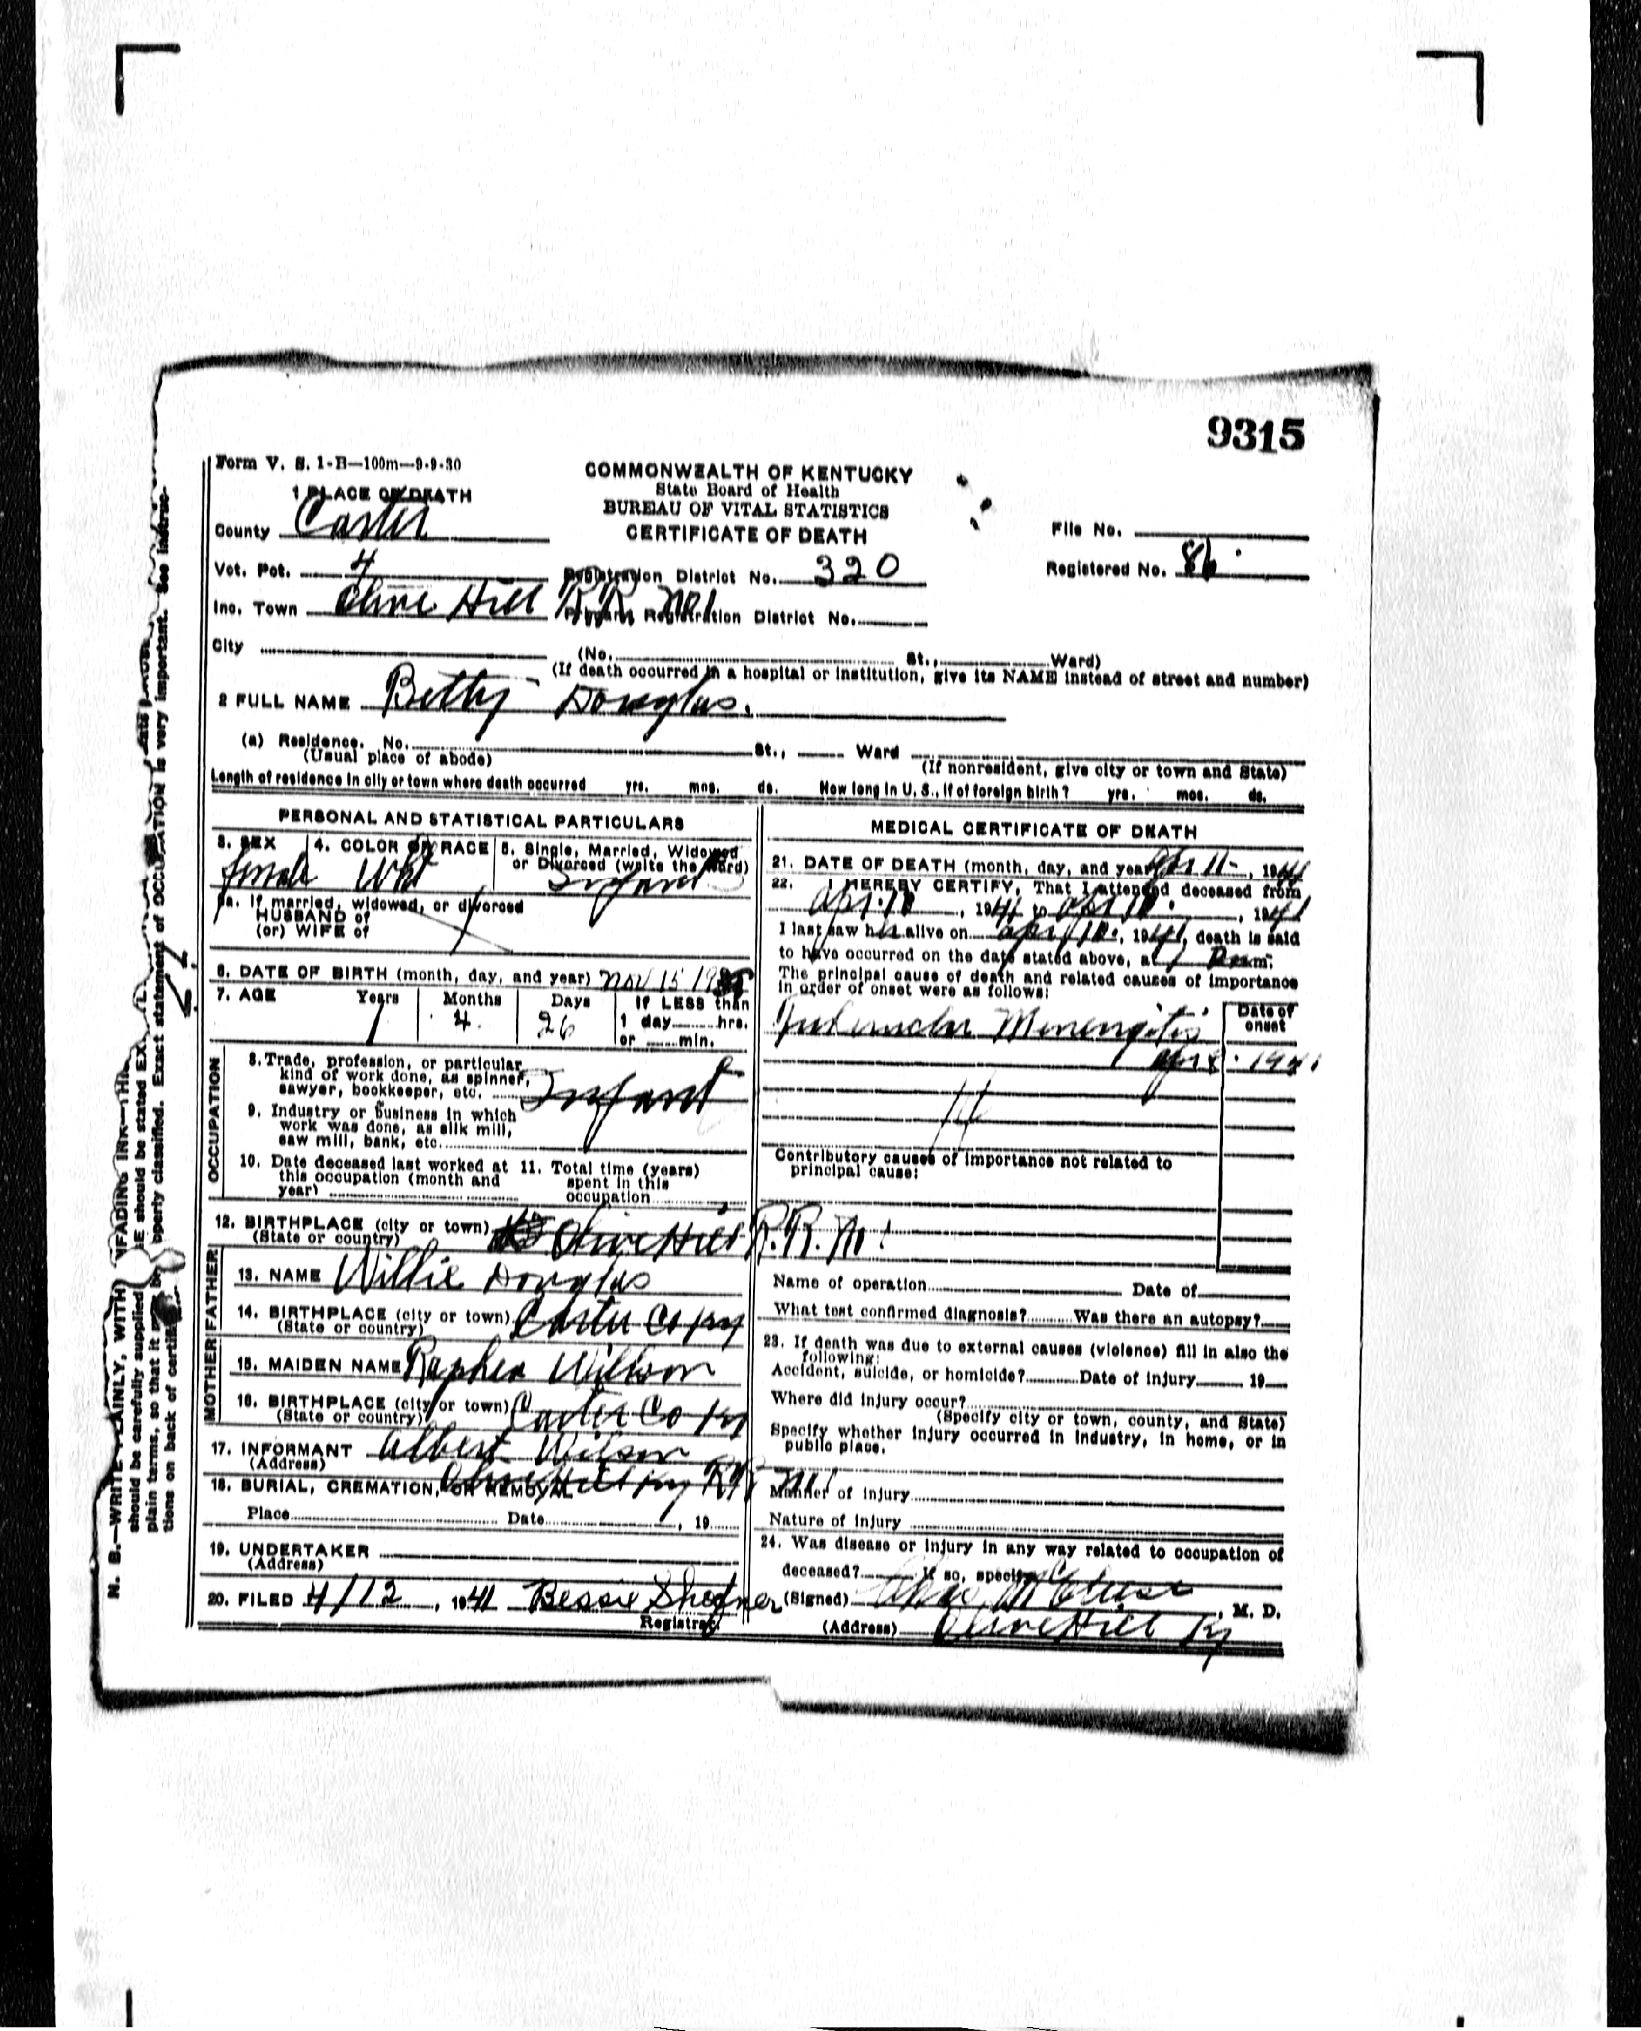 9315
Form V. S. 1-B—100m—9-9-30
COMMONWEALTH OF KENTUCKY
State Board of Health
BUREAU OF VITAL STATISTICS
CERTIFICATE OF DEATH
1 PLACE OF DEATH
County Carter
File No.
Vot. Pct. 4
Registration District No. 320
Registered No. 86
Inc. Town Olive Hill RR No 1
Primary Registration District No.
City (No. St., Ward)
(If death occurred in a hospital or institution, give its NAME instead of street and number)
2 FULL NAME Betty Douglas.
(a) Residence. No. St., Ward
(Usual place of abode) (If nonresident, give city or town and State)
Length of residence in city or town where death occurred yrs. mos. ds. How long in U. S., if of foreign birth? yrs. mos. ds.
PERSONAL AND STATISTICAL PARTICULARS
3. SEX 4. COLOR OR RACE 5. Single, Married, Widowed
or Divorced (write the word)
female Wht Infant
5a. If married, widowed, or divorced
HUSBAND of
(or) WIFE of
6. DATE OF BIRTH (month, day, and year) Nov 15
7. AGE Years Months Days If LESS than
1 4 26 1 day hrs.
or min.
OCCUPATION
8. Trade, profession, or particular
kind of work done, as spinner,
sawyer, bookkeeper, etc. Infant
9. Industry or business in which
work was done, as silk mill,
saw mill, bank, etc.
10. Date deceased last worked at
this occupation (month and
year)
11. Total time (years)
spent in this
occupation
12. BIRTHPLACE (city or town) Olive Hill R.R. No 1
(State or country)
FATHER
13. NAME Willie Douglas
14. BIRTHPLACE (city or town) Carter Co Ky
(State or country)
MOTHER
15. MAIDEN NAME Wilson
16. BIRTHPLACE (city or town) Carter Co Ky
(State or country)
17. INFORMANT Albert Wilson
(Address) Olive Hill Ky RR No 1
18. BURIAL, CREMATION, OR REMOVAL
Place Date , 19
19. UNDERTAKER
(Address)
20. FILED 4/12, 1941 Bessie
Registrar
MEDICAL CERTIFICATE OF DEATH
21. DATE OF DEATH (month, day, and year) Apr 11-, 1941
22. I HEREBY CERTIFY, That I attended deceased from
Apr. 10, 1941 to Apr 10, 1941
I last saw her alive on Apr 10, 1941, death is said
to have occurred on the date stated above, at m.
The principal cause of death and related causes of importance
in order of onset were as follows:
Date of
onset
Tubercular Menengitis
Apr 1941
Contributory causes of importance not related to
principal cause:
Name of operation Date of
What test confirmed diagnosis? Was there an autopsy?
23. If death was due to external causes (violence) fill in also the
following:
Accident, suicide, or homicide? Date of injury 19
Where did injury occur?
(Specify city or town, county, and State)
Specify whether injury occurred in industry, in home, or in
public place.
Manner of injury
Nature of injury
24. Was disease or injury in any way related to occupation of
deceased? If so, specify
(Signed) M. D.
(Address) Olive Hill Ky